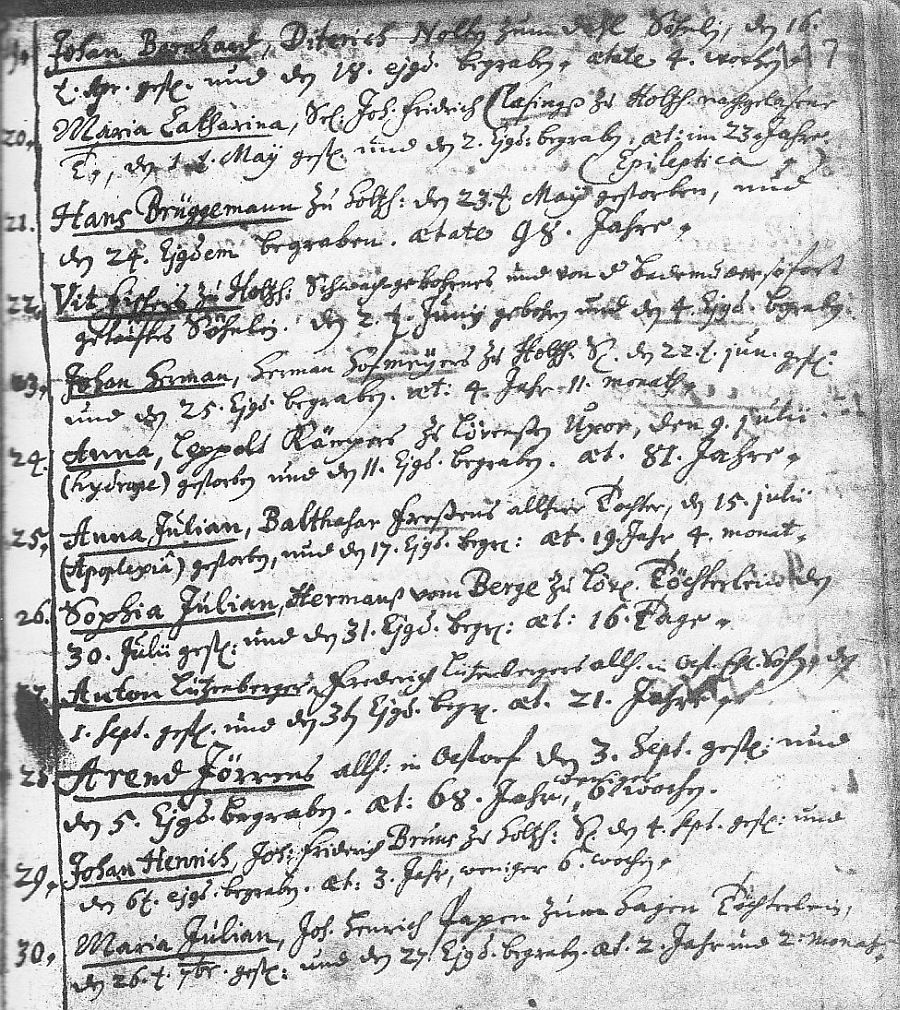 Johan Bernhard, Diterich Nolte zum Söhnlein, den 16.
t. Apr. gest. und den 18. ejsd. begraben, ætate 4. wochen.
20. Maria Catharina, Sel. Joh. Fridrich Clasings zu Holtzh. nachgelassene
T., den 1. t. Maÿ gest. und den 2. Ejsd: begraben. æt: im 23. Jahre.
(Epileptica)
21. Hans Brüggemann zu Holtzh: den 23. t. Maÿ gestorben, und
den 24. Ejsdem begraben. ætate 98. Jahre.
22. Vit zu Holtzh: Schwachgebohrnes und von d. Bademutter sofort
getauftes Söhnlein. den 2. t. Junij gebohren und den 4. Ejsd. begrab.
23. Johan Herman, Herman Hofmeÿers zu Holtzh. S. den 22. t. jun. gest:
und den 25. Ejsd. begraben. æt: 4. Jahr 11. monath.
24. Anna, Leppolt Kämpers zu Uxor, den 9. julii
(hydrope) gestorben und den 11. Ejsd. begraben. æt. 81. Jahre.
25. Anna Julian, Balthasar allhier Tochter, den 15. julii
(Apoplexiâ) gestorben, und den 17. Ejsd. begr: æt. 19. Jahr 4. monat.
26. Sophia Julian, Hermanß vom Berge zu Töchterlein den
30. Julii gest: und den 31. Ejsd. begr: æt: 16. Tage.
Anton Lutzenberger, Friederich Lutzenbergers allh. in Ost. Sohn, den
1. Sept. gest. und den 3t. Ejsd. begr. æt. 21. Jahre
28. Arend Jörrens allh: in Ostorf den 3. Sept. gest: und
den 5. Ejsd. begraben. æt: 68. Jahr, weniger 6 wochen.
29. Johan Henrich, Joh: Friderich Bruns zu Holtzh: S. den 4. Spt. gest: und
den 6t. ejsd. begraben. æt: 3. Jahr, weniger 6. wochen.
30. Maria Julian, Joh. Henrich Papen zum Hagen Töchterlein,
den 26. t. 7br. gest: und den 27. Ejsd. begraben. æt. 2. Jahr und 2. monath.